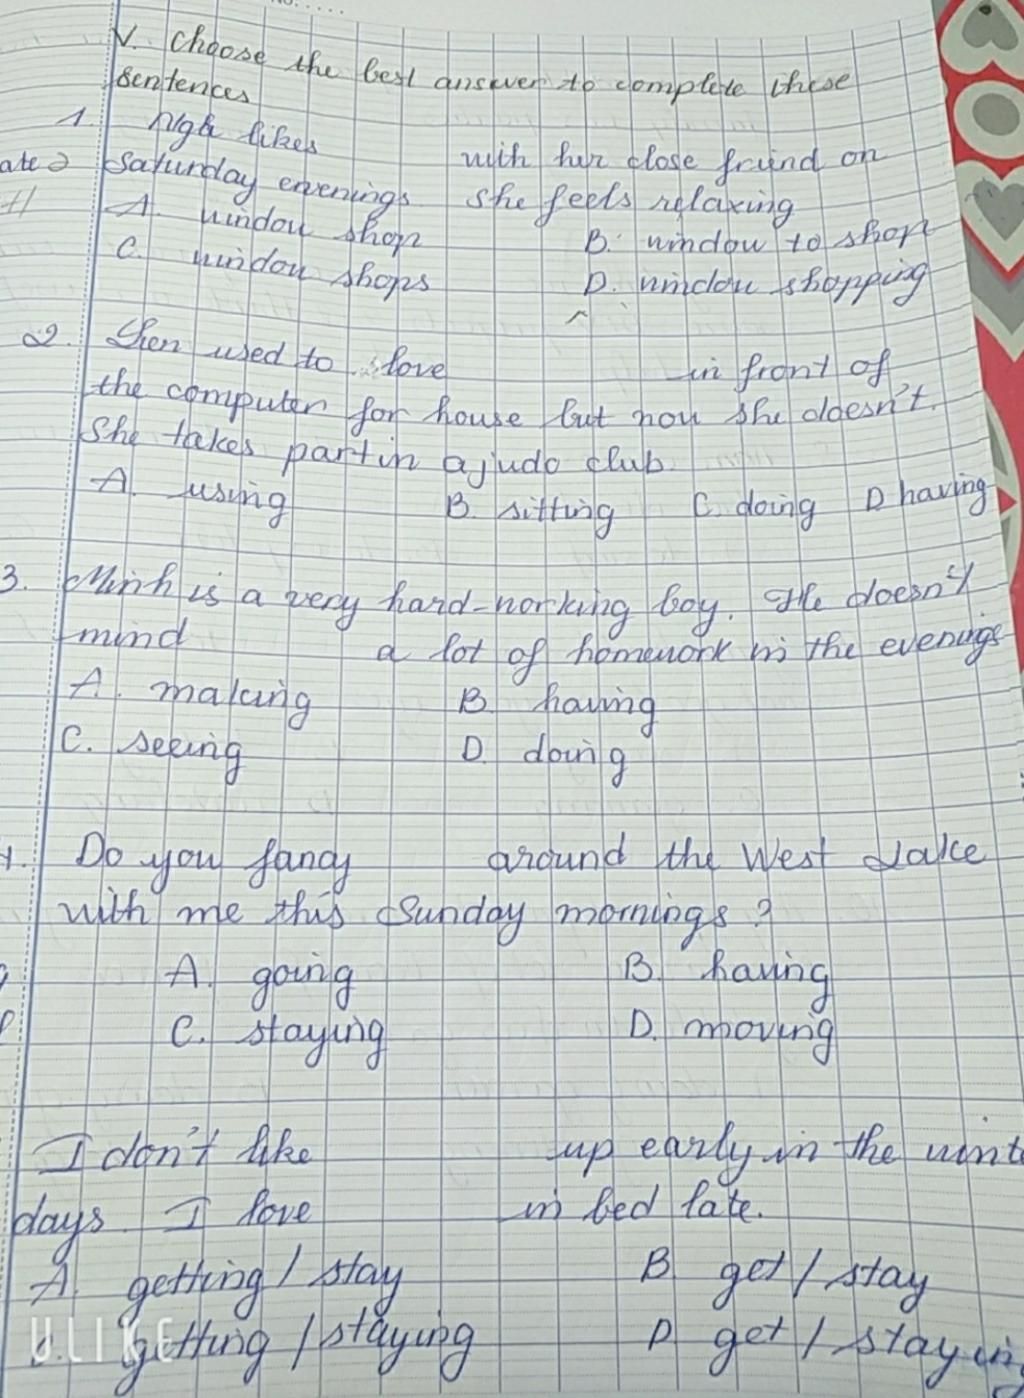 V. Choose the best answer to complete these
sentences
1. Nga likes with her close friend on
ate
Saturday evenings. She feels relaxing
A. window shop B. window to shop
C. window shops D. window shopping
2. Lien used to love in front of
the computer for house but now she doesn't.
She takes part in a judo club.
A. using B. sitting C. doing D having
3. Minh is a very hard-working boy. He doesn't
mind a lot of homework in the evenings
A. making B. having
C. seeing D. doing
Do you fancy around the West Lake
with me this Sunday mornings?
A. going B. having
C. staying D. moving
I don't like up early in the wint
days. I love in bed late.
A. getting / stay B. get / stay
getting / staying D. get / stayin
ULIKE